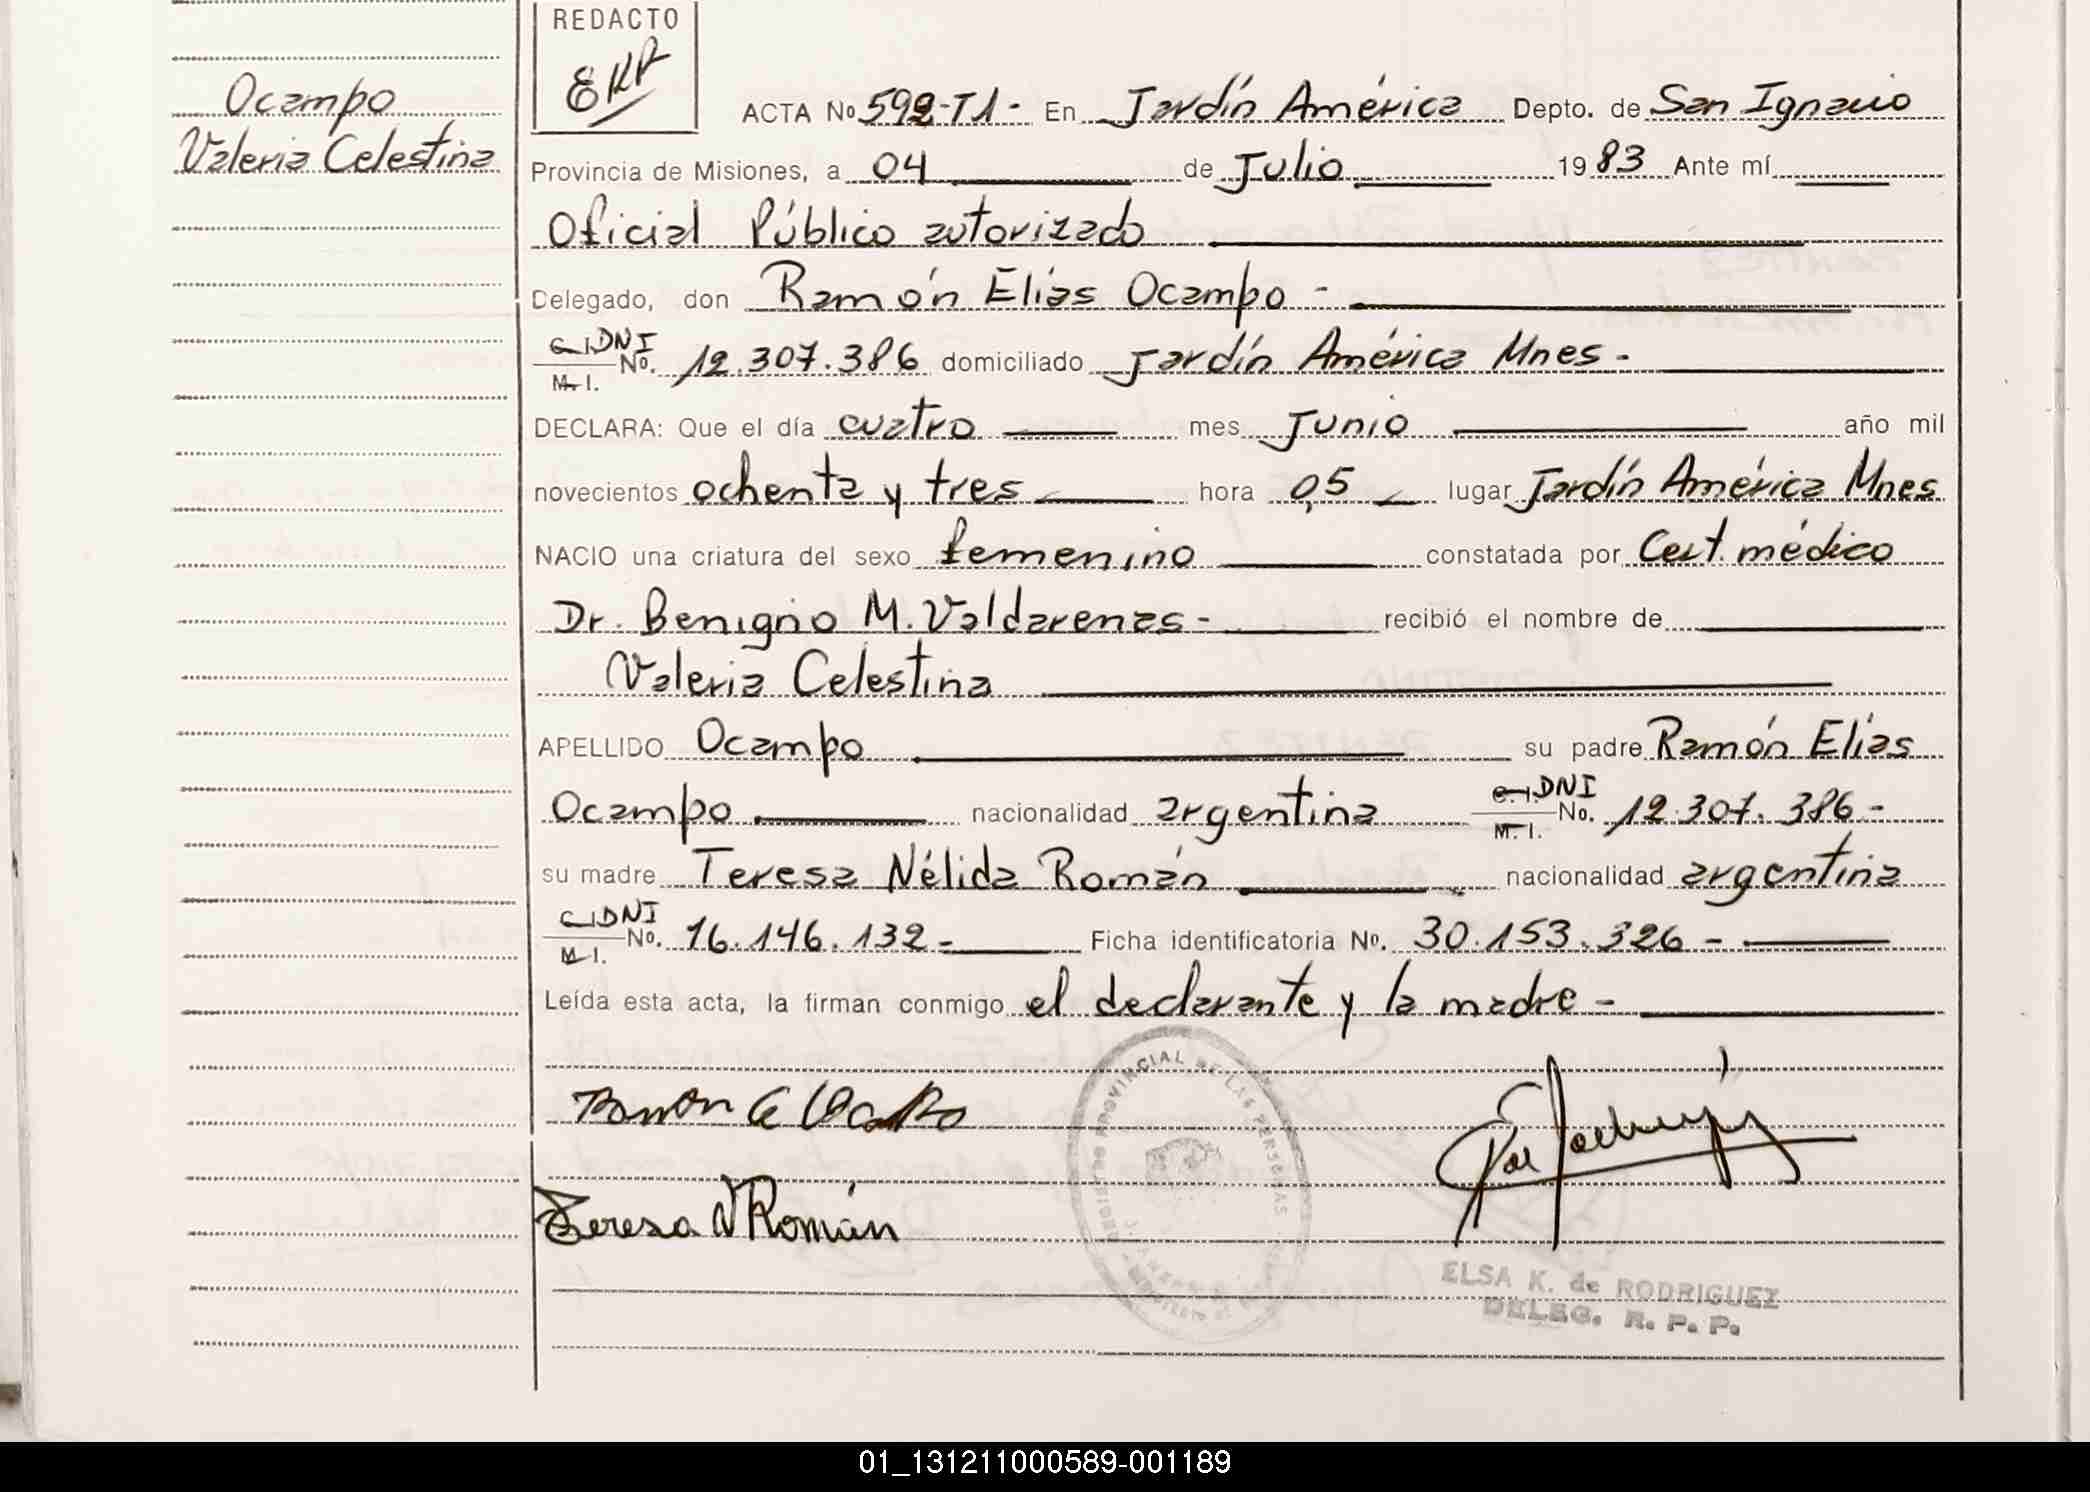 REDACTO
ERR
Ocampo
Valeria Celestina
ACTA No 592-T1- En Jardín América Depto. de San Ignacio
Provincia de Misiones, a 04 de Julio 1983 Ante mí
Oficial Público autorizado
Delegado, don Ramón Elías Ocampo -
C.I. DNI
M.I. No. 12.307.386 domiciliado Jardín América Mnes-
DECLARA: Que el día cuatro mes Junio año mil
novecientos ochenta y tres hora 0,5 lugar Jardín América Mnes
NACIO una criatura del sexo femenino constatada por Cert. médico
Dr. Benigno M. Valdarenas- recibió el nombre de
Valeria Celestina
APELLIDO Ocampo su padre Ramón Elías
Ocampo nacionalidad argentina C.I. DNI M.I. No. 12.307.386-
su madre Teresa Nélida Román nacionalidad argentina
C.I. DNI
M.I. No. 16.146.132- Ficha identificatoria No. 30.153.326-
Leída esta acta, la firman conmigo el declarante y la madre-
Ramon E Ocampo
Teresa N Román
REGISTRO PROVINCIAL DE LAS PERSONAS
ELSA K. de RODRIGUEZ
DELEG. R. P. P.
01_131211000589-001189